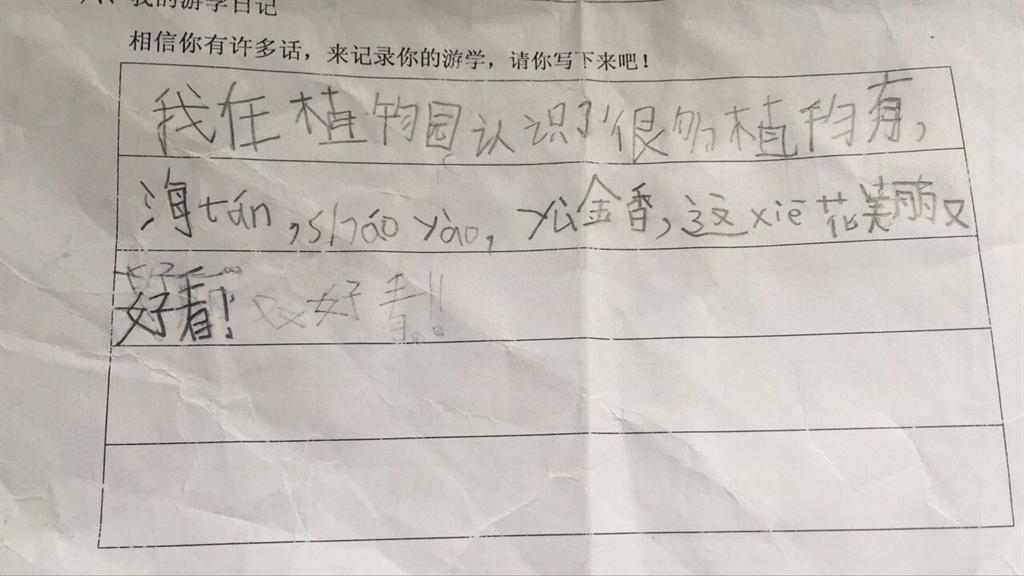 我的游学日记
相信你有许多话，来记录你的游学，请你写下来吧！
我在植物园认识了很多植物有，
海tán，sháo yào，yù金香，这xiē花美丽又
好看！又又好看。！！